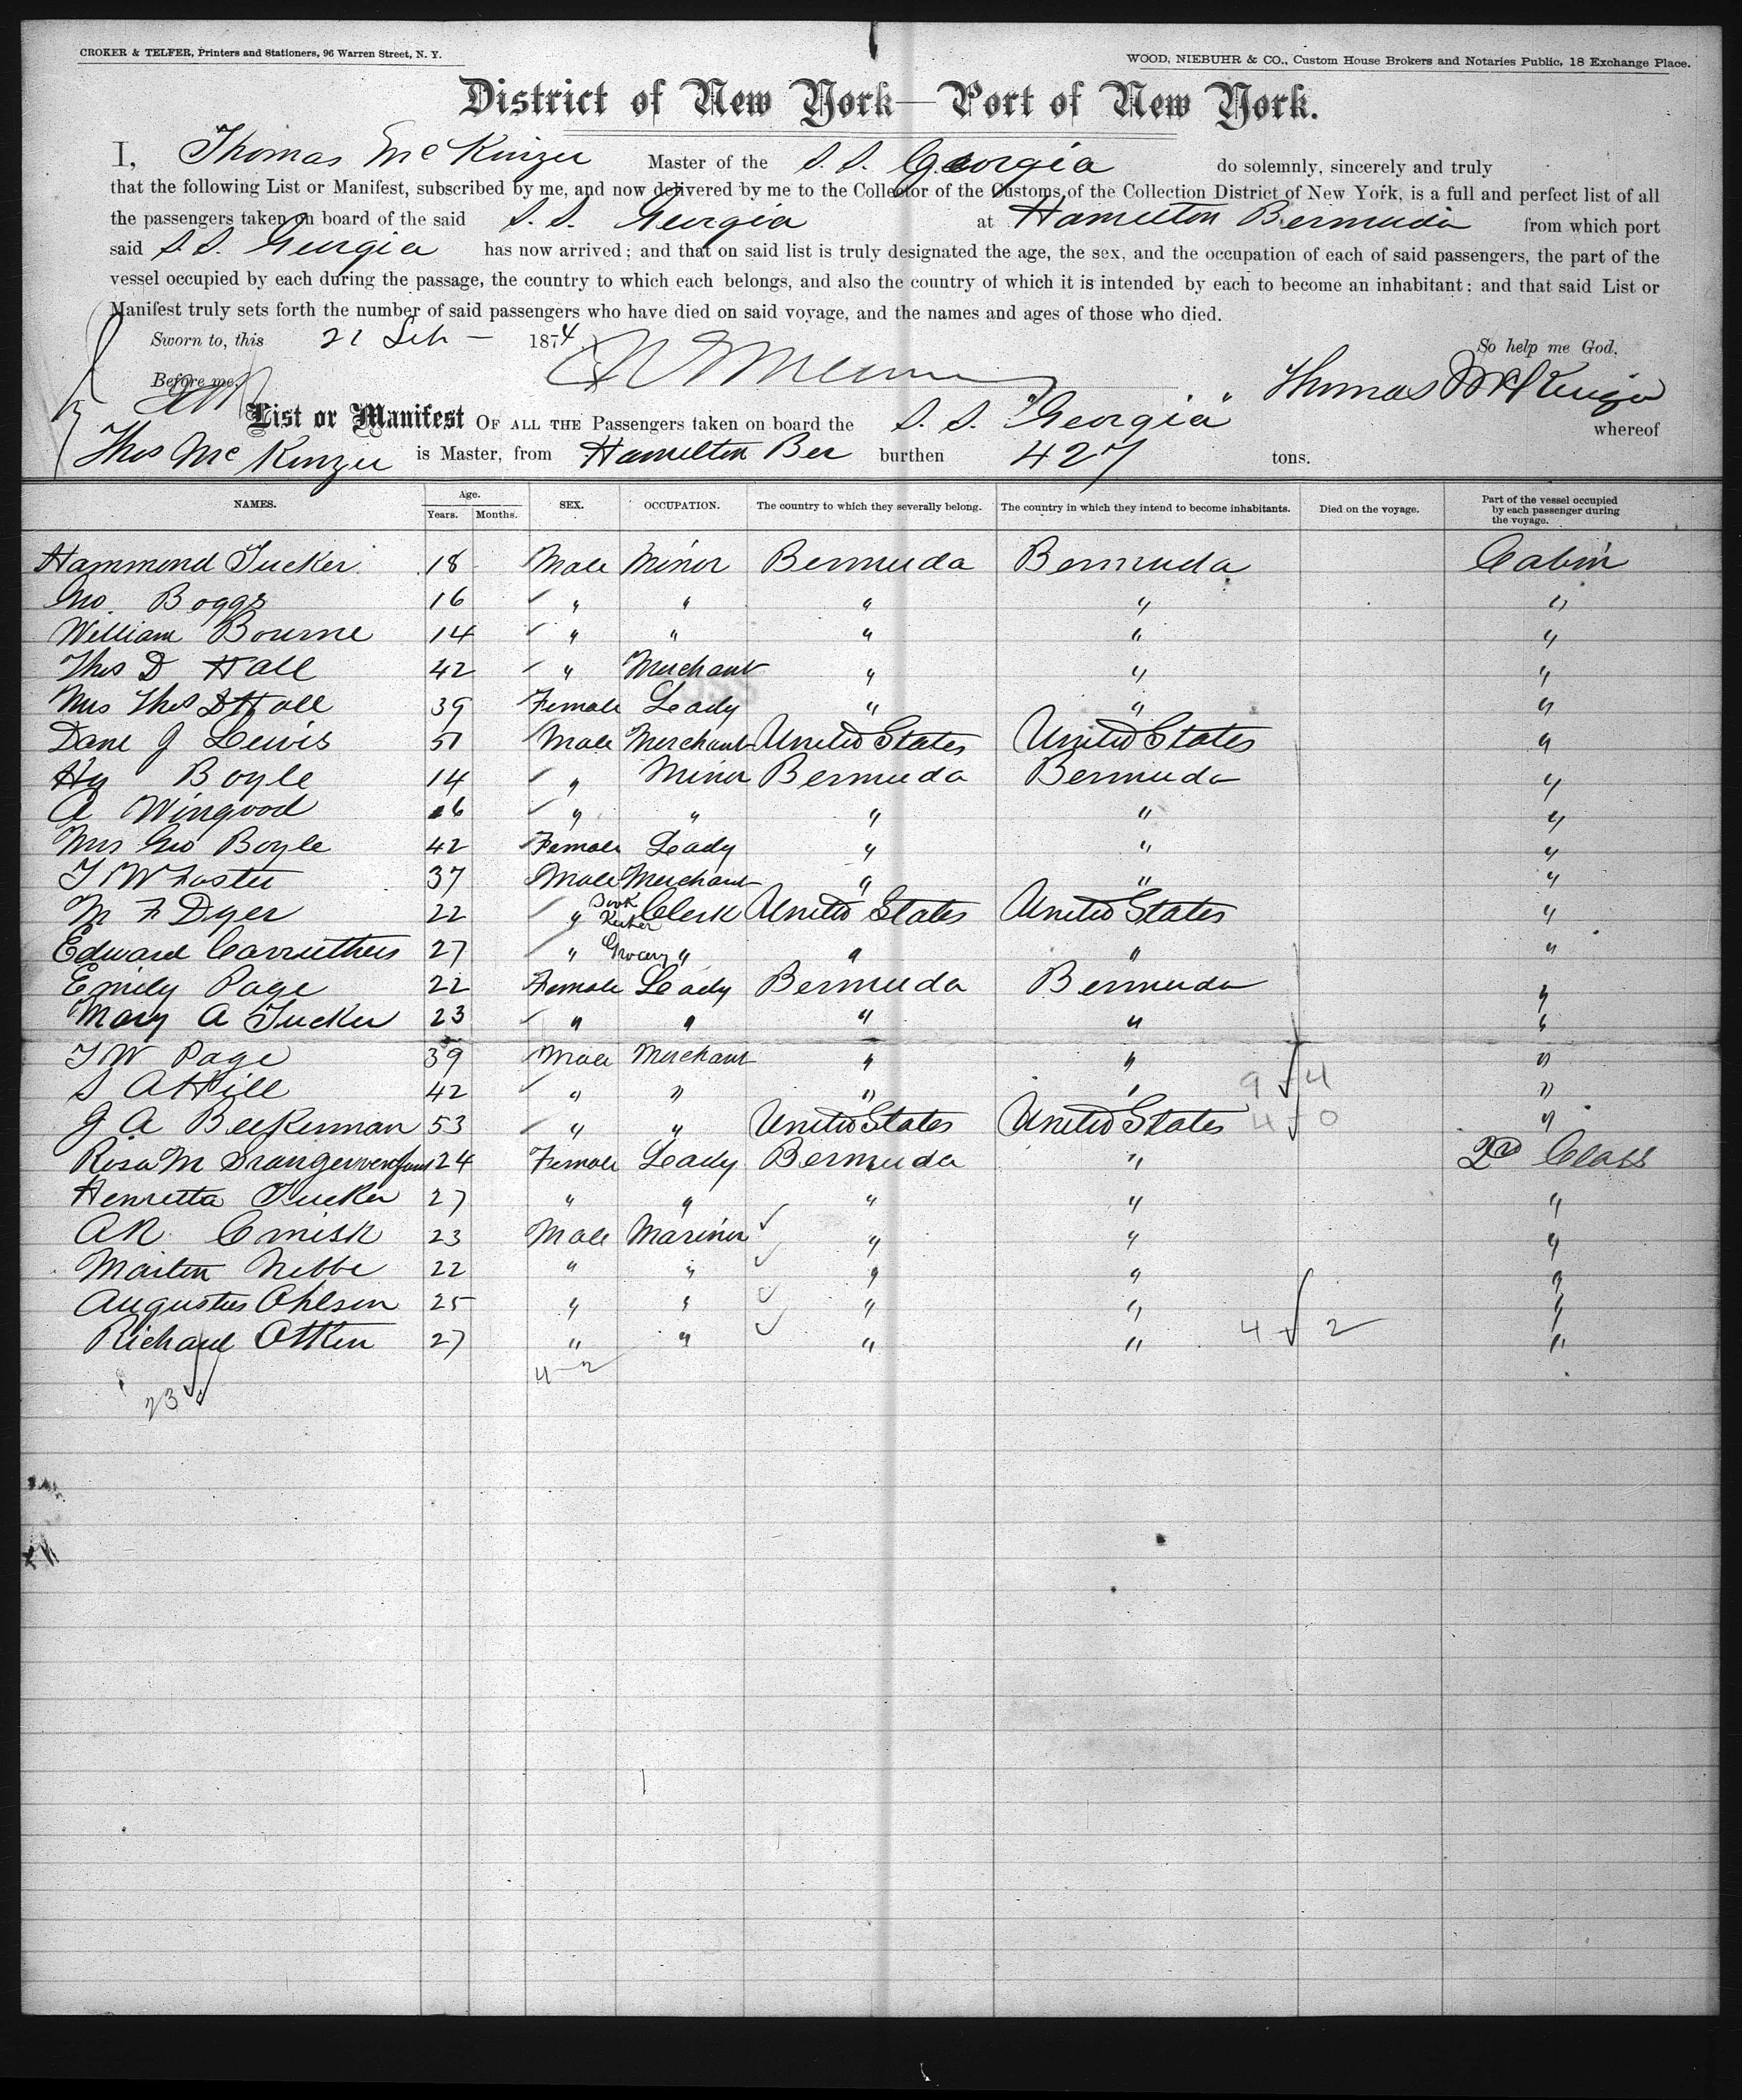 CROKER & TELFER, Printers and Stationers, 96 Warren Street, N. Y.
WOOD, NIEBUHR & CO., Custom House Brokers and Notaries Public, 18 Exchange Place.
District of New York—Port of New York.
I, Thomas Mc Kinzie Master of the S. S. Georgia do solemnly, sincerely and truly
that the following List or Manifest, subscribed by me, and now delivered by me to the Collector of the Customs, of the Collection District of New York, is a full and perfect list of all
the passengers taken on board of the said S. S. Georgia at Hamilton Bermuda from which port
said S S. Georgia has now arrived; and that on said list is truly designated the age, the sex, and the occupation of each of said passengers, the part of the
vessel occupied by each during the passage, the country to which each belongs, and also the country of which it is intended by each to become an inhabitant; and that said List or
Manifest truly sets forth the number of said passengers who have died on said voyage, and the names and ages of those who died.
Sworn to, this 21 1874 So help me God,
Before me, Thomas
List or Manifest OF ALL THE Passengers taken on board the S. S. "Georgia" whereof
Thos Mc Kinzie is Master, from Hamilton Ber burthen 427 tons.
NAMES. Age. Years. Months. SEX. OCCUPATION. The country to which they severally belong. The country in which they intend to become inhabitants. Died on the voyage. Part of the vessel occupied by each passenger during the voyage.
Hammond Tucker 18 Male Minor Bermuda Bermuda Cabin
Jno. Boggs 16 " " " " "
William Bourne 14 " " " " "
Thos D Hall 42 " Merchant " " "
Mrs Thos D Hall 39 Female Lady " " "
Dane J Lewis 51 Male Merchant United States United States "
Hy Boyle 14 " Minor Bermuda Bermuda "
A Wingood 16 " " " " "
Mrs Geo Boyle 42 Female Lady " " "
T W Foster 37 Male Merchant " " "
M F Dyer 22 " Clerk United States United States "
Edward Carruthers 27 " Grocery " " " "
Emily Page 22 Female Lady Bermuda Bermuda "
Mary A Tucker 23 " " " " "
T W Page 39 Male Merchant " " "
S A Hill 42 " " " " 9 4 "
J A Beekerman 53 " " United States United States 4 0 "
Rosa M 24 Female Lady Bermuda " 2nd Class
Henrietta Tucker 27 " " " " "
A R Cmisk 23 Male Mariner " " "
Martin Nebbe 22 " " " " "
Augustus Ohlson 25 " " " " "
Richard Otten 27 " " " " 4 2 "
4-2
23